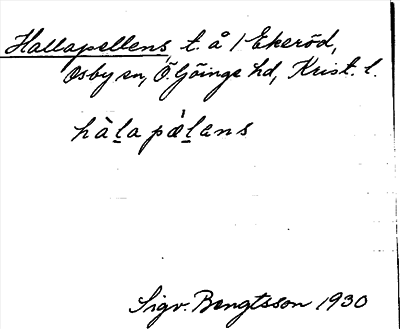 Hallapellens, t. å 1 Ekeröd,
Osby sn, Ö. Göinge hd, Krist. l.
hàl̲a pæ̀l̲ans
Sigv. Bengtsson 1930